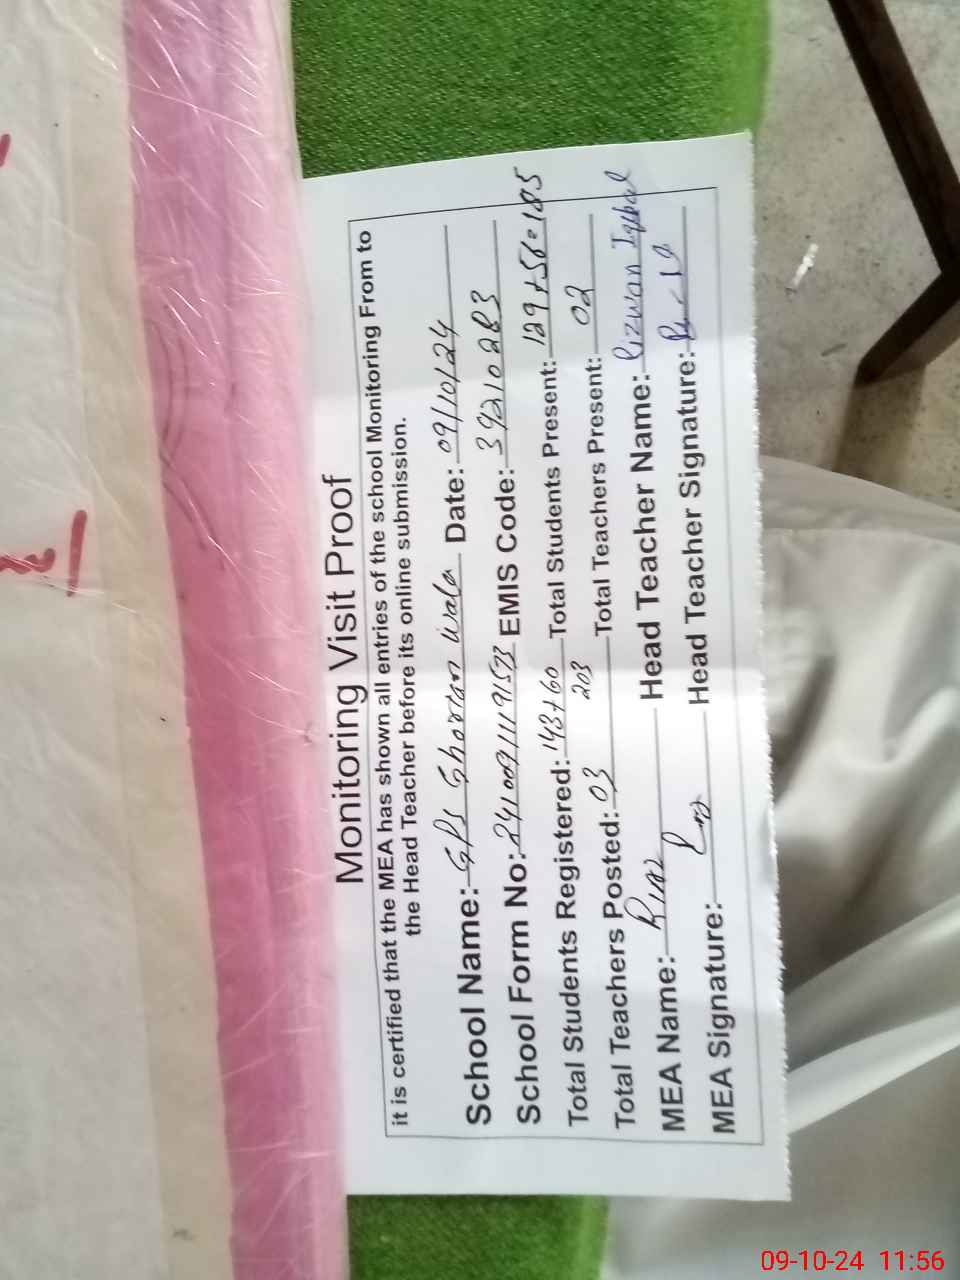 Monitoring Visit Proof
it is certified that the MEA has shown all entries of the school Monitoring From to
the Head Teacher before its online submission.
School Name: GPS Ghortan Wala Date: 09/10/24
School Form No: 241009111191573 EMIS Code: 39210283
Total Students Registered: 143+60 Total Students Present: 129+56=185
203
Total Teachers Posted: 03 Total Teachers Present: 02
MEA Name: Riaz Head Teacher Name: Rizwan Iqbal
MEA Signature: Head Teacher Signature:
09-10-24 11:56